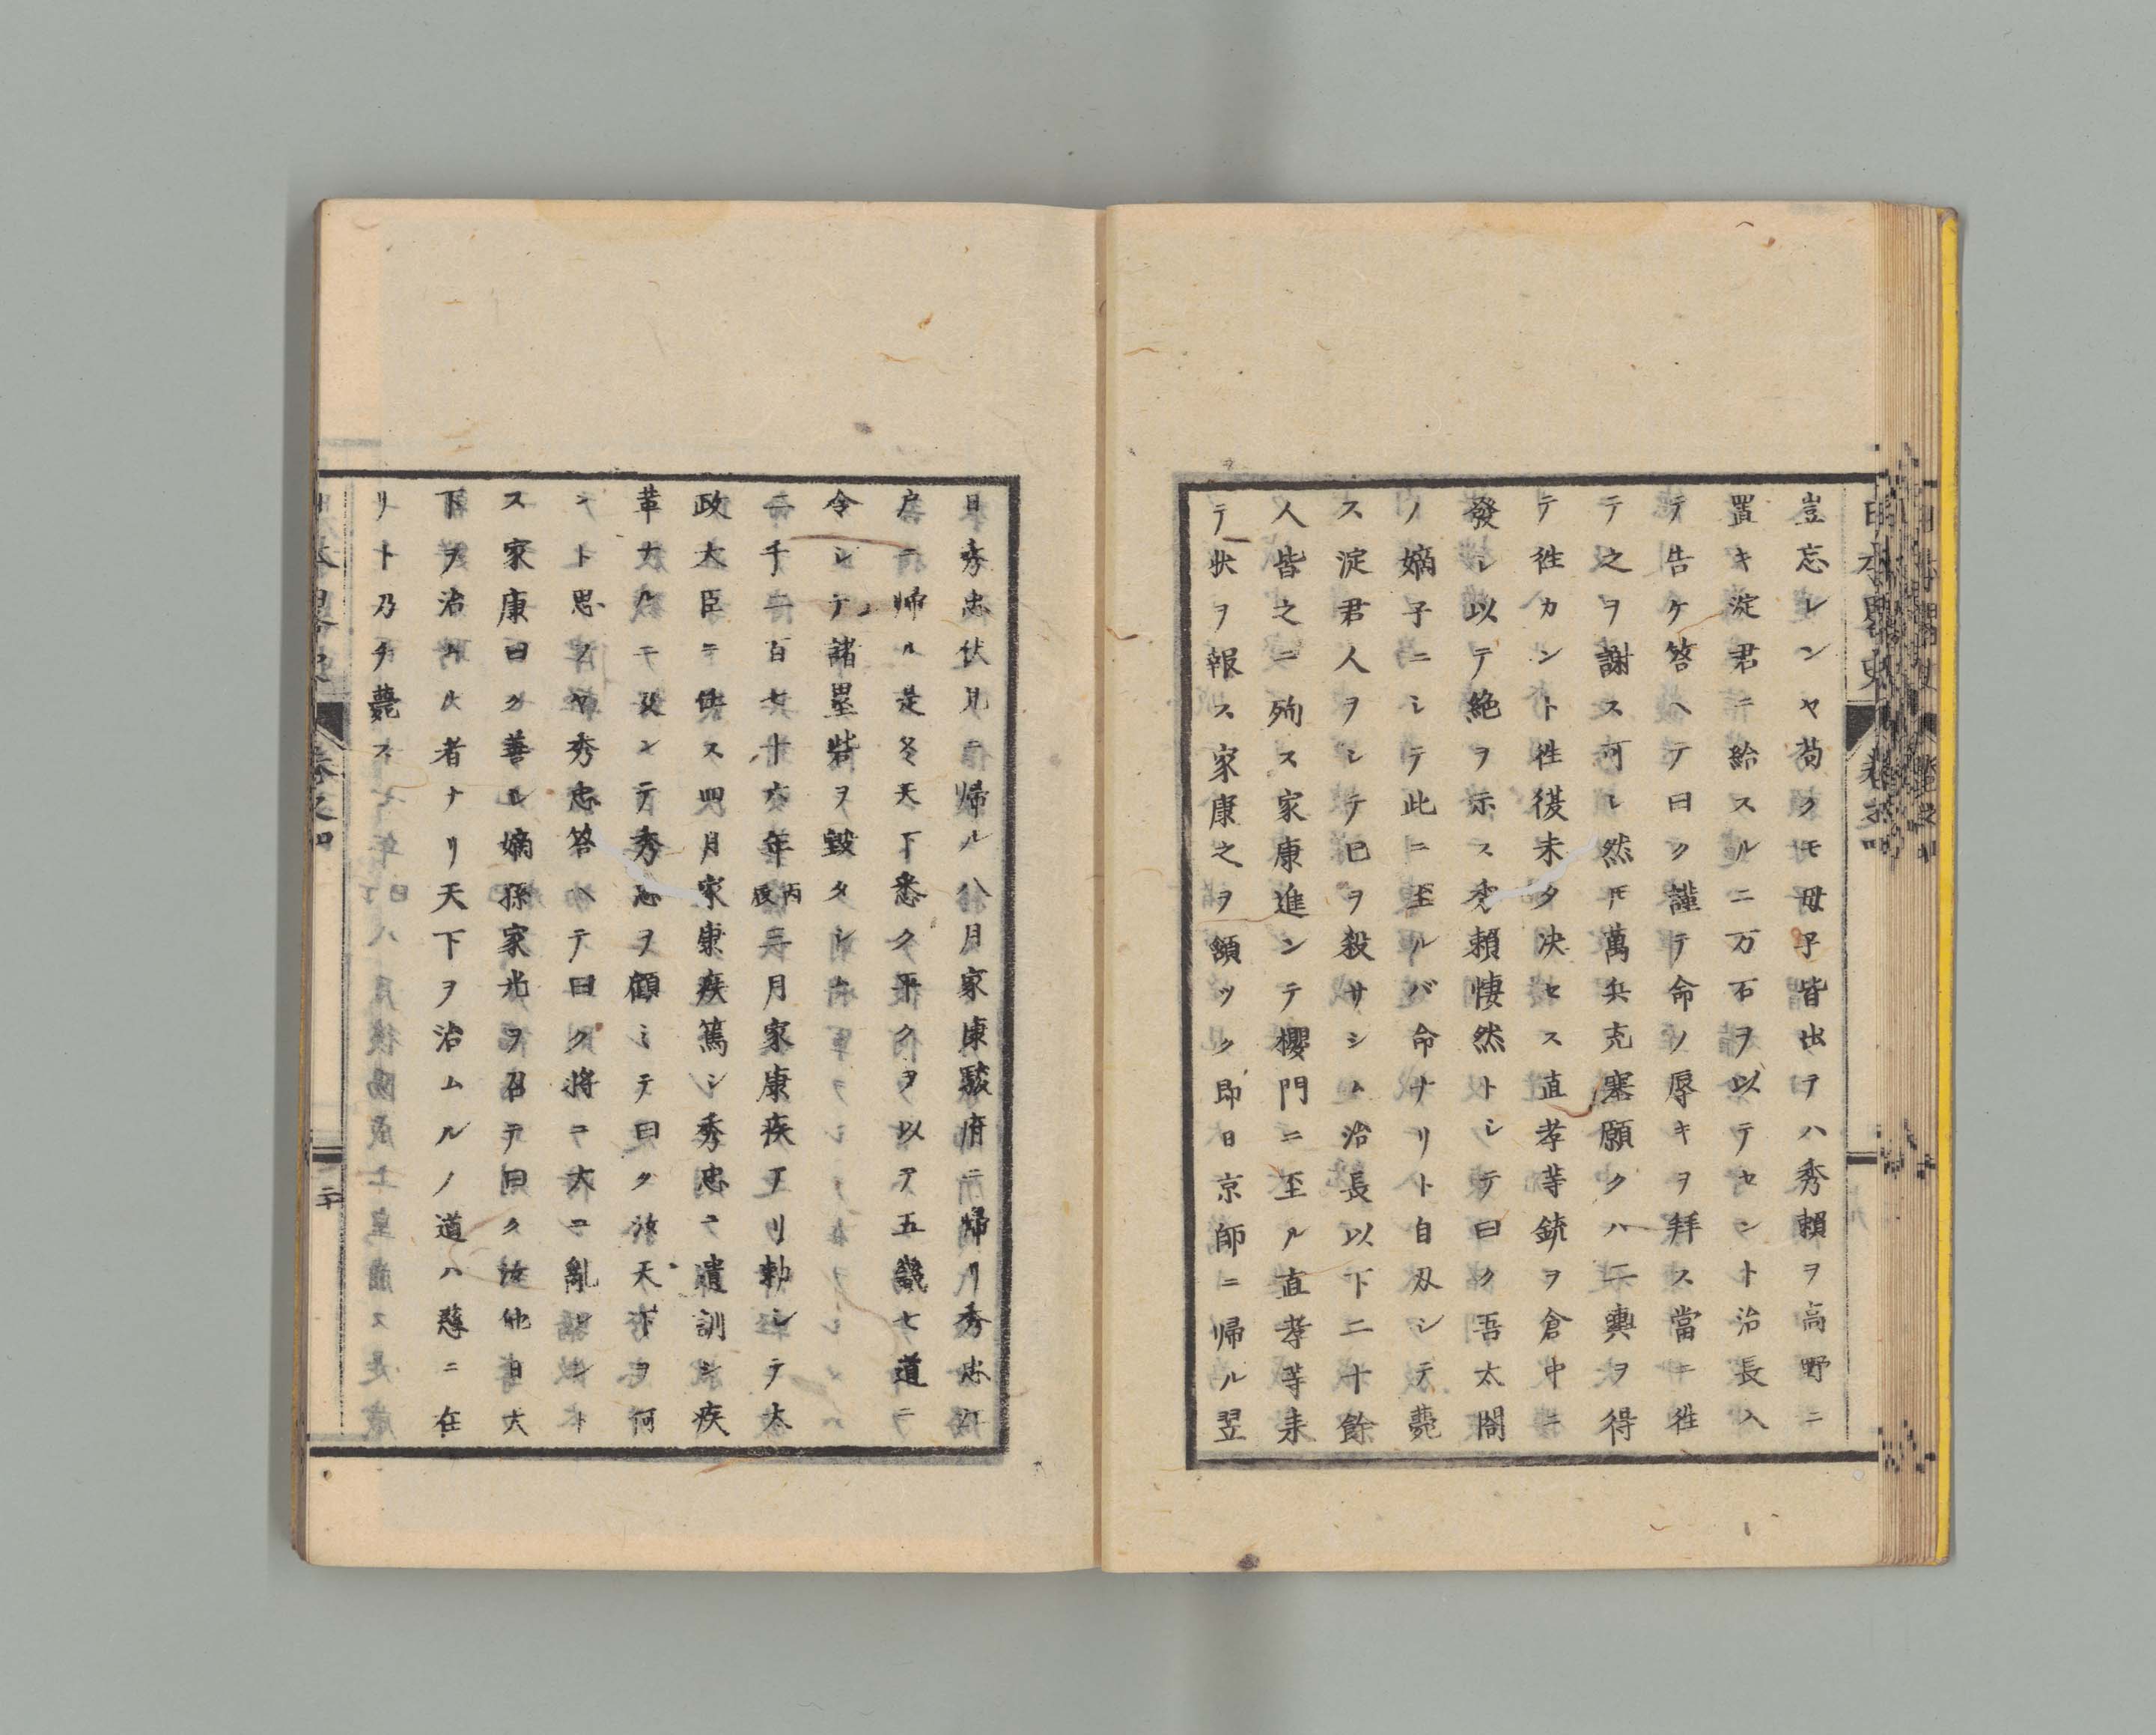 日本畧史 卷之四
豈忘レンヤ苟クモ母子皆出テハ秀賴ヲ高野ニ
置キ淀君ニ給スルニ二万石ヲ以テセント治長入
テ告ケ答ヘテ曰ク謹テ命ノ辱キヲ拜ス當ニ徃
テ之ヲ謝ス可シ然モ萬兵充塞願クハ二輿ヲ得
テ徃カント徃復未タ决セス直孝等銃ヲ倉中ニ
發シ以テ絶ヲ示ス秀賴悽然トシテ曰ク吾太閤
ノ嫡子ニシテ此ニ至ルバ命ナリト自刄シテ薨
ス淀君人ヲシテ已ヲ殺サシム治長以下二十餘
人皆之ニ殉ス家康進ンテ櫻門ニ至ル直孝等来
テ状ヲ報ス家康之ヲ頷ック即日京師ニ帰ル翌
日秀忠伏見ニ帰ル八月家康駿府ニ帰リ秀忠江
戸ニ帰ル是冬天下悉ク平クヲ以テ五畿七道ニ
令シテ諸壘砦ヲ毀タシム
二千二百七十六年丙辰三月家康疾アリ勅シテ太
政大臣ニ任ス四月家康疾篤シ秀忠ニ遺訓シ疾
革ナルニ及ンテ秀忠ヲ顧ミテ曰ク汝天下ヲ何
ント思フヤ秀忠答ヘテ曰ク將ニ大ニ亂レント
ス家康曰ク善シ嫡孫家光ヲ召テ曰ク汝他日天
下ヲ治ムル者ナリ天下ヲ治ムルノ道ハ慈ニ在
リト乃チ薨ス
日本畧史 卷之四 二十